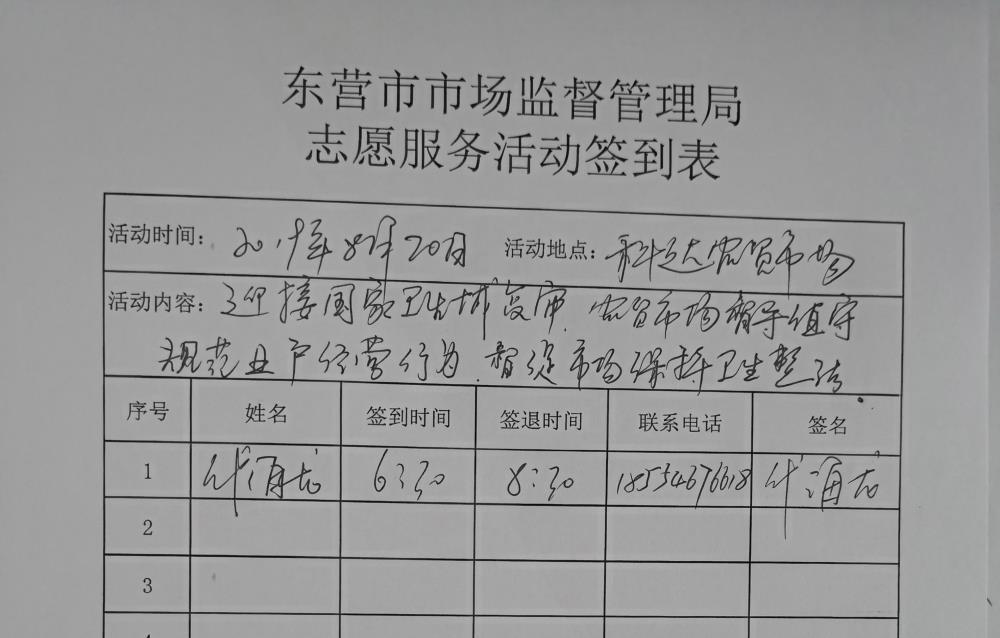 东营市市场监督管理局
志愿服务活动签到表
活动时间: 2019年8月20日 活动地点: 科达农贸市场
活动内容: 迎接国家卫生城复审.农贸市场督导值守
规范业户经营行为.督促市场保持卫生整洁.
序号 姓名 签到时间 签退时间 联系电话 签名
1 代海龙 6:30 8:30 18554676618 代海龙
2
3